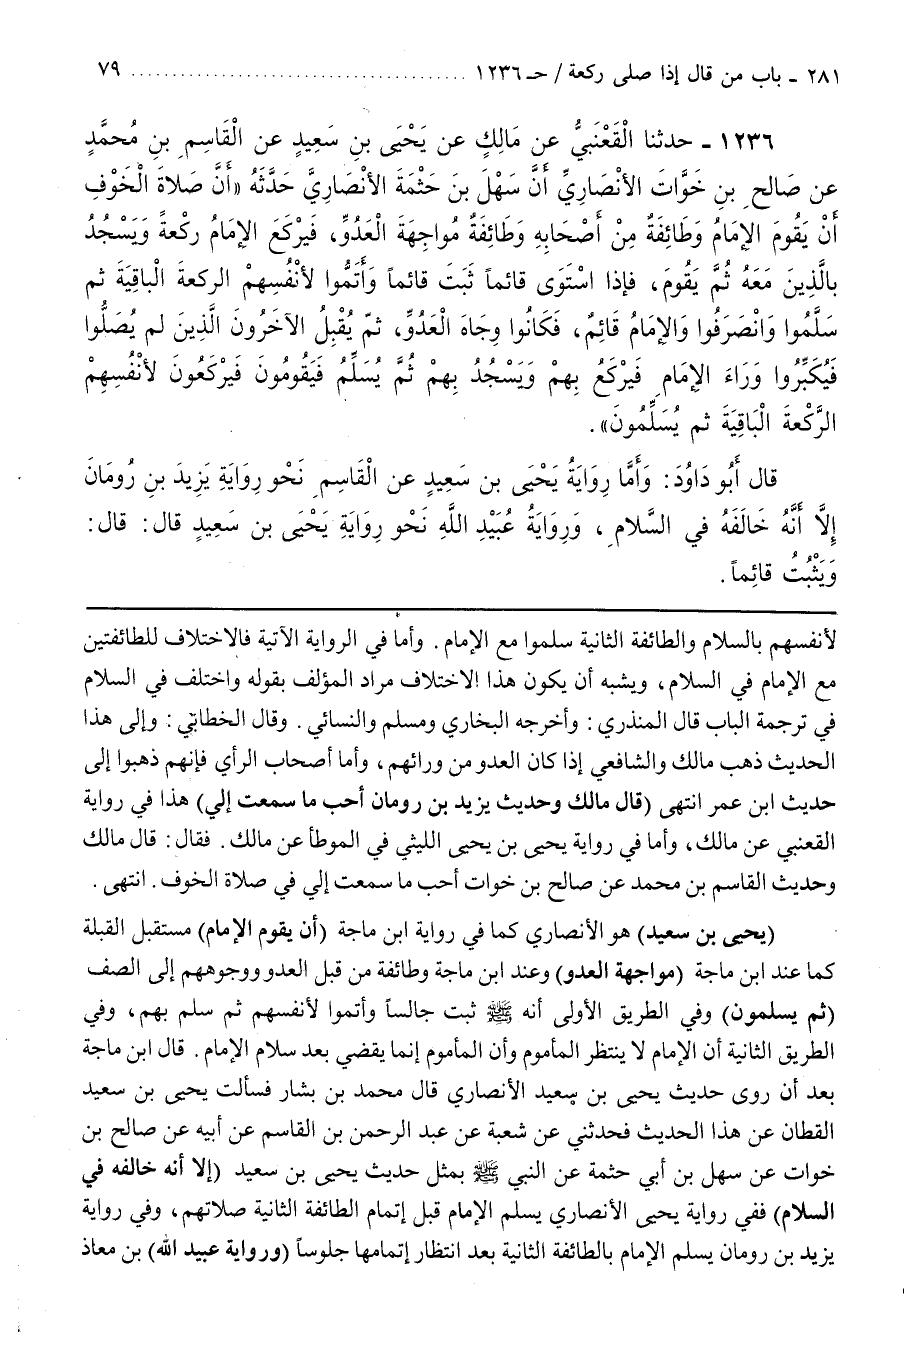 ٢٨١ - باب من قال إذا صلى ركعة / حـ ١٢٣٦ ........................................ ٧٩
١٢٣٦ - حدثنا الْقَعْنَبيُّ عن مَالِكٍ عن يَحْيَى بنِ سَعِيدٍ عن الْقَاسِمِ بنِ مُحمَّدٍ
عن صَالحِ بنِ خَوَّاتَ الأنْصَارِيِّ أنَّ سَهْلَ بنَ حَثْمَةَ الأنْصَارِيَّ حَدَّثَهُ «أنَّ صَلاةَ الْخَوْفِ
أَنْ يَقُومَ الإمَامُ وَطَائِفَةٌ مِنْ أَصْحَابِهِ وَطَائِفَةٌ مُواجِهَةَ الْعَدُوِّ، فَيَرْكَعَ الإمَامُ ركْعةً وَيَسْجُدُ
بالَّذِينَ مَعَهُ ثُمَّ يَقُومَ، فإذا اسْتَوَى قائماً ثَبَتَ قائماً وَأَتمُّوا لأنْفُسِهِمْ الركعةَ الْباقِيَةَ ثم
سَلَّمُوا وَانْصَرَفُوا وَالإمَامُ قَائِمٌ، فَكَانُوا وِجَاهَ الْعَدُوِّ، ثمّ يُقْبِلُ الآخَرُونَ الَّذِينَ لم يُصَلُّوا
فَيُكَبِّرُوا وَرَاءَ الإمَامِ فَيَرْكَعُ بهِمْ وَيَسْجُدُ بهِمْ ثُمَّ يُسَلِّمُ فَيَقُومُونَ فَيَرْكَعُونَ لأنْفُسِهِمْ
الرَّكْعةَ الْبَاقِيَةَ ثم يُسَلِّمُونَ».
قال أَبُو دَاوُدَ: وَأَمَّا رِوَايَةُ يَحْيَى بن سَعِيدٍ عن الْقَاسِمِ نَحْو رِوَايَةِ يَزِيدَ بنِ رُومَانَ
إلَّا أَنَّهُ خَالَفَهُ في السَّلامِ، وَرِوَايَةُ عُبَيْدِ اللَّهِ نَحْو رِوَايَةِ يَحْيَى بن سَعِيدٍ قال: قال:
وَيَثْبُتُ قائِماً.
لأنفسهم بالسلام والطائفة الثانية سلموا مع الإمام. وأما في الرواية الآتية فالاختلاف للطائفتين
مع الإمام في السلام، ويشبه أن يكون هذا الاختلاف مراد المؤلف بقوله واختلف في السلام
في ترجمة الباب قال المنذري: وأخرجه البخاري ومسلم والنسائي. وقال الخطابي: وإلى هذا
الحديث ذهب مالك والشافعي إذا كان العدو من ورائهم، وأما أصحاب الرأي فإنهم ذهبوا إلى
حديث ابن عمر انتهى (قال مالك وحديث يزيد بن رومان أحب ما سمعت إلي) هذا في رواية
القعنبي عن مالك، وأما في رواية يحيى بن يحيى الليثي في الموطأ عن مالك. فقال: قال مالك
وحديث القاسم بن محمد عن صالح بن خوات أحب ما سمعت إلي في صلاة الخوف. انتهى.
(يحيى بن سعيد) هو الأنصاري كما في رواية ابن ماجة (أن يقوم الإمام) مستقبل القبلة
كما عند ابن ماجة (مواجهة العدو) وعند ابن ماجة وطائفة من قبل العدو ووجوههم إلى الصف
(ثم يسلمون) وفي الطريق الأولى أنه ﷺ ثبت جالساً وأتموا لأنفسهم ثم سلم بهم، وفي
الطريق الثانية أن الإمام لا ينتظر المأموم وأن المأموم إنما يقضي بعد سلام الإمام. قال ابن ماجة
بعد أن روى حديث يحيى بن سعيد الأنصاري قال محمد بن بشار فسألت يحيى بن سعيد
القطان عن هذا الحديث فحدثني عن شعبة عن عبد الرحمن بن القاسم عن أبيه عن صالح بن
خوات عن سهل بن أبي حثمة عن النبي ﷺ بمثل حديث يحيى بن سعيد (إلا أنه خالفه في
السلام) ففي رواية يحيى الأنصاري يسلم الإمام قبل إتمام الطائفة الثانية صلاتهم، وفي رواية
يزيد بن رومان يسلم الإمام بالطائفة الثانية بعد انتظار إتمامها جلوساً (ورواية عبيد الله) بن معاذ